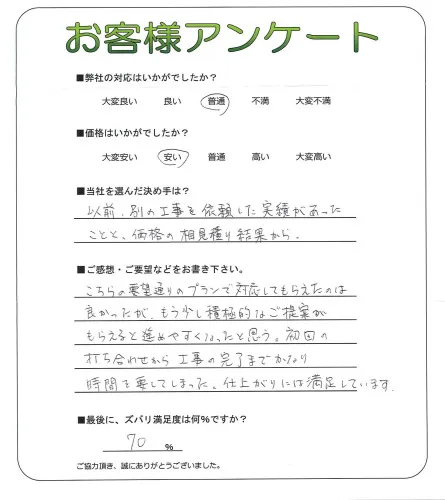 お客様アンケート
■弊社の対応はいかがでしたか?
大変良い 良い 普通 不満 大変不満
■価格はいかがでしたか?
大変安い 安い 普通 高い 大変高い
■当社を選んだ決め手は?
以前、別の工事を依頼した実績があった
ことと、価格の相見積り結果から。
■ご感想・ご要望などをお書き下さい。
こちらの要望通りのプランで対応してもらえたのは
良かったが、もう少し積極的なご提案が
もらえると進めやすくなったと思う。初回の
打ち合わせから工事の完了までかなり
時間を要してしまった、仕上がりには満足しています.
■最後に、ズバリ満足度は何%ですか?
70 %
ご協力頂き、誠にありがとうございました。